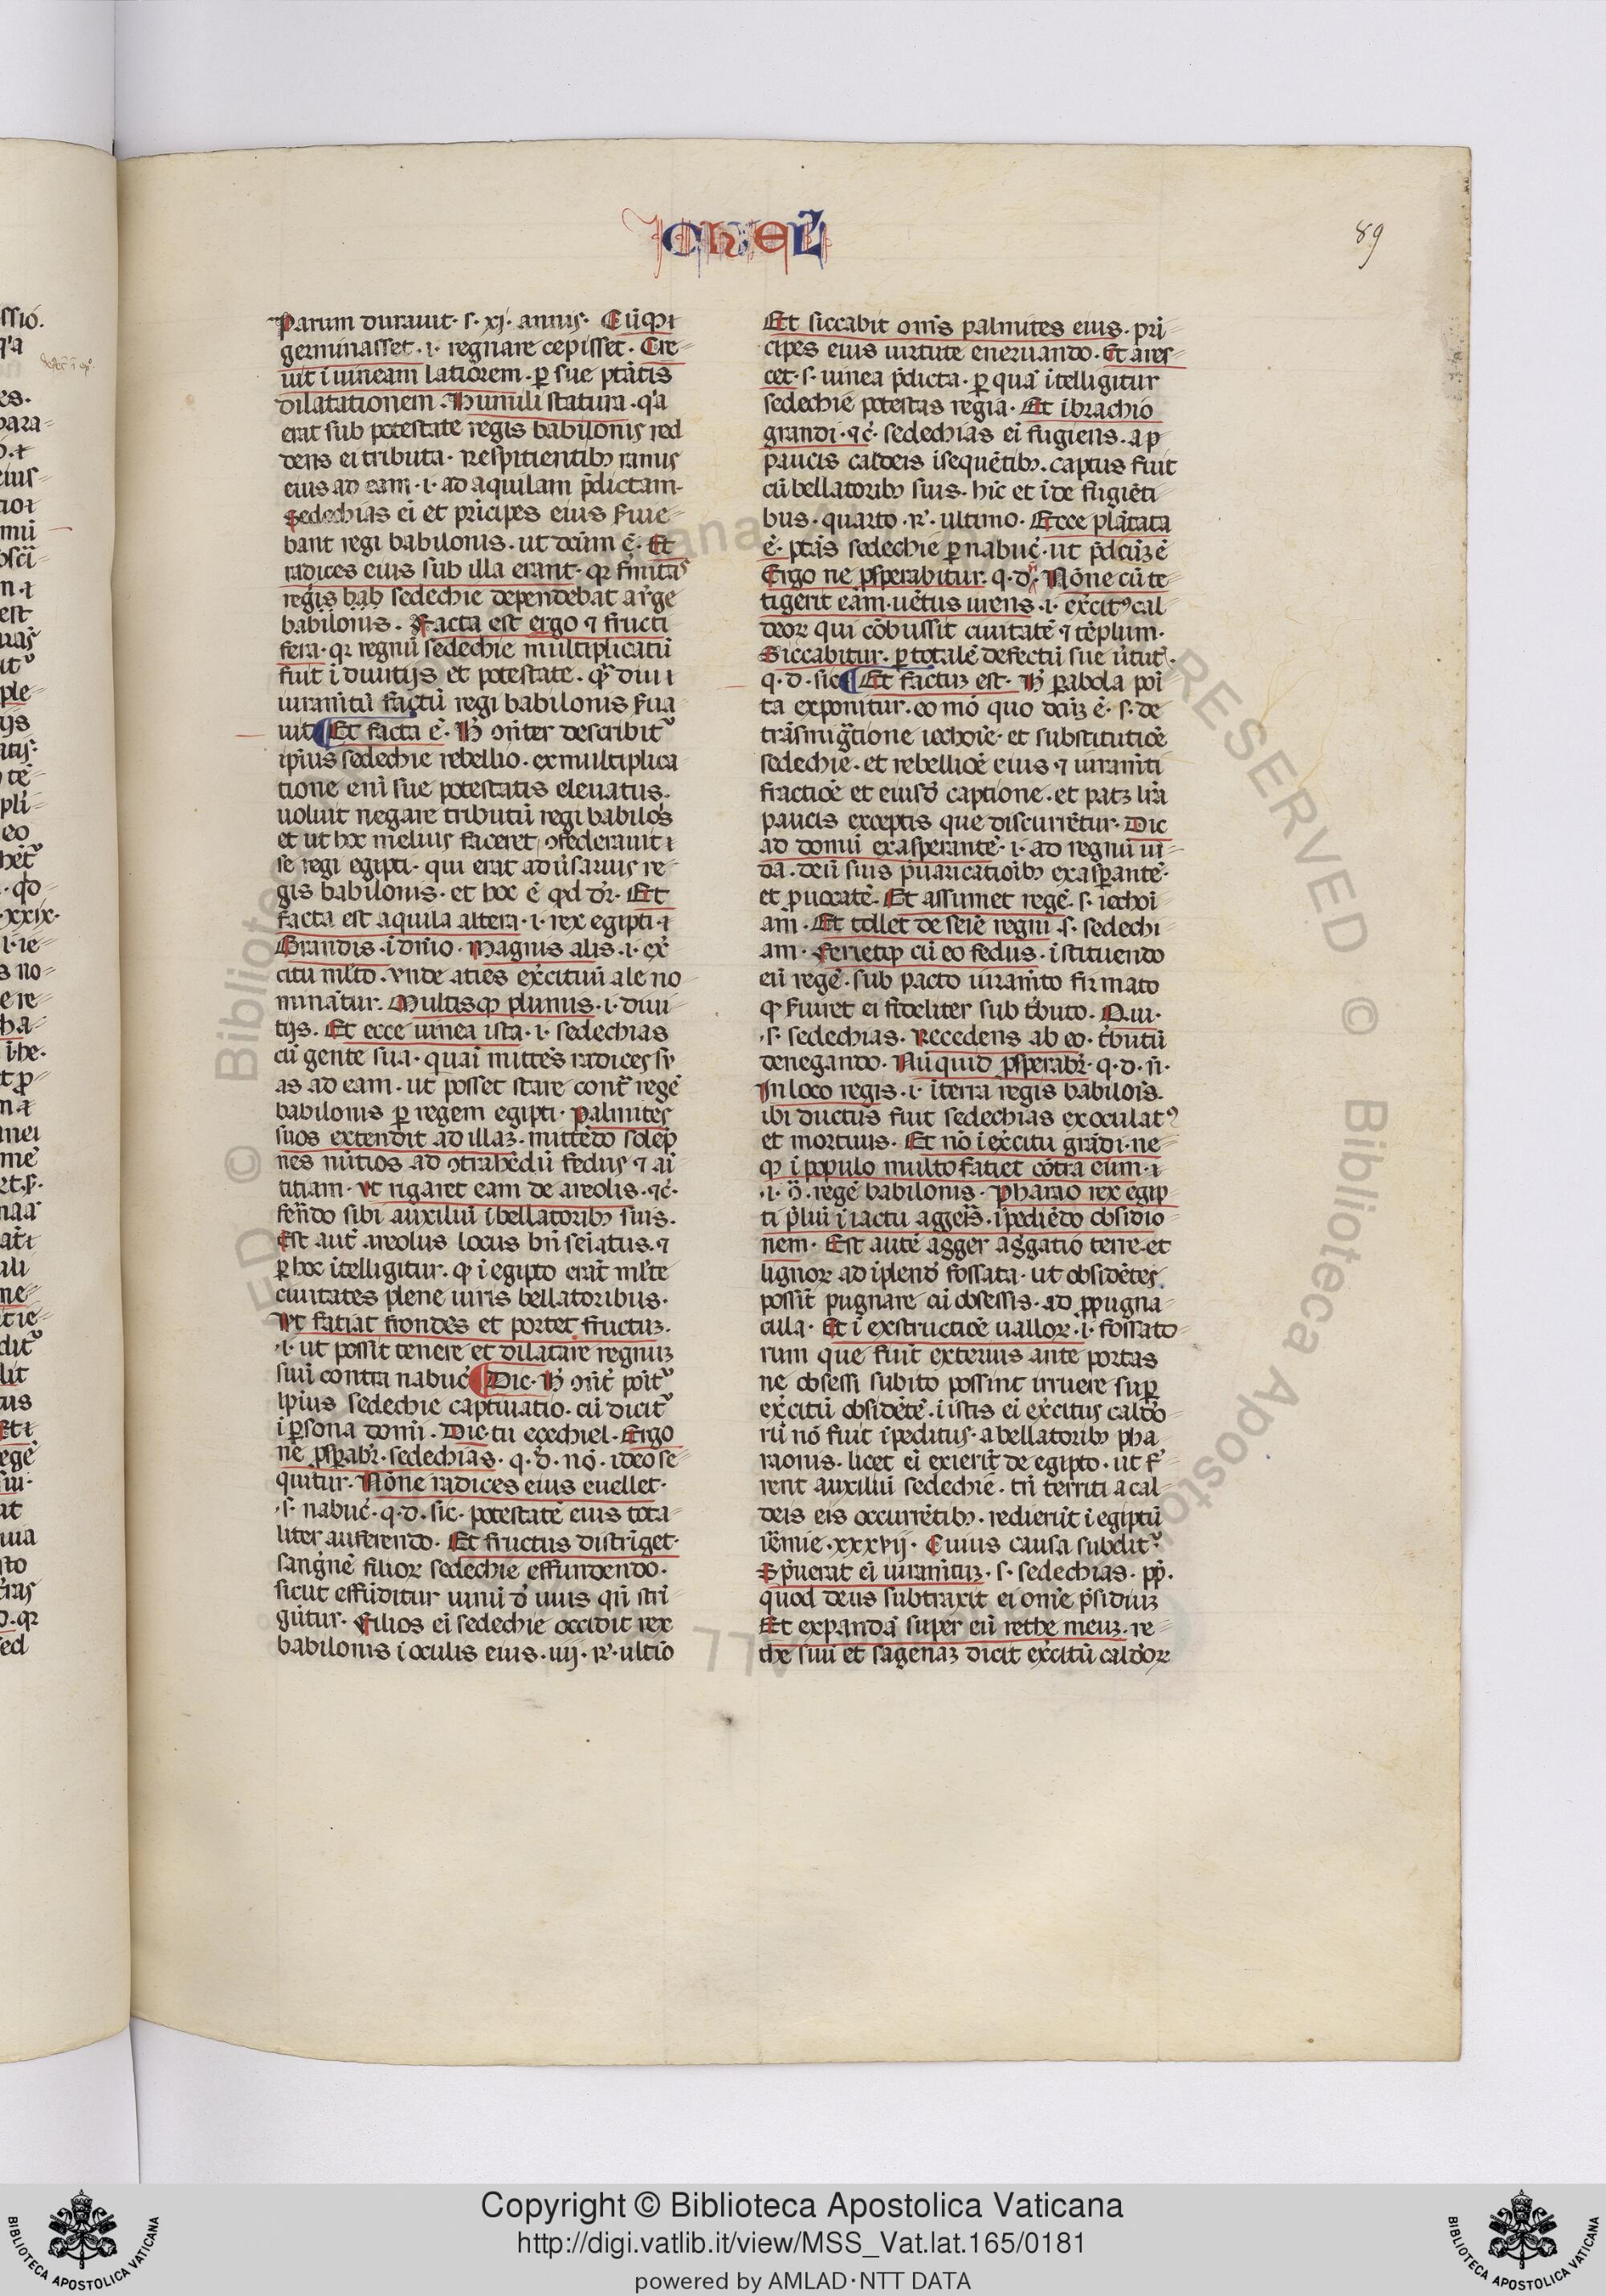 CHEL̃
89
Parum durauit· s· xj· annis· Cũq₃
germinasset· i· regnare cepisset· Cre⸗
uit ĩ uineam latiorem· ꝑ sue ptãtis
dilatationem· Humili statura· qͥa
erat sub potestate regis babilonis red
dens ei tributa· Respitientib₉ ramis
eius ad eam· i· ad aquilam p̃dictam·
Sedechias ei et prĩcipes eius serue⸗
bant regi babilonis· ut dc̃um ẽ· Et
radices eius sub illa erant· qꝛ firmitas
regis bab sedechie dependebat a r̃ge
babilonis· Facta est ergo ⁊ fructi
fera· qꝛ regnũ sedechie multiplicatũ
fuit ĩ diuitijs et potestate· qͣ diu
iuramtũ factũ regi babilonis serua
uit ¶ Et facta ẽ· H̃ ꝯñter describitᷣ
ipĩus sedechie rebellio· ex multiplica
tione enĩ sue potestatis eleuatus·
uoluit negare tributũ regi babilõs
et ut hoc melius faceret ꝯfederauit
se regi egipti· qui erat adũsarius re⸗
gis babilonis· et hoc ẽ qd dr̃· Et
facta est aquila altera· i· rex egipti·
Grandis· ĩ dñio· Magnis alis· i· ex̃
citu mlto· vnde aties ex̃cituũ ale no
minãtur· Multisq₃ plumis· i· diui
tijs· Et ecce uinea ista· i· sedechias
cũ gente sua· quasi mittẽs radices su
as ad eam· ut posset stare contᷓ regẽ
babilonis ꝑ regem egipti· Palmites
suos extendit ad illaʒ· mittẽdo solẽp
nes nũtios ad ꝯtrahẽdũ fedus ⁊ ami
titiam· vt rigaret eam de areolis· ⁊c̃·
ferẽdo sibi auxiliũ ĩ bellatorib₉ suis·
Est aut̃ areolus locus bñ seĩatus· ⁊
ꝑ hoc ĩtelligitur· ꝙ ĩ egipto erãt mlte
ciuitates plene uiris bellatoribus·
Vt fatiat frondes et portet fructuʒ·
·i· ut possit tenere et dilatare regnuʒ
suũ contra nabuc̃ ¶ Dic· H̃ ꝯñt̃ poitᷣ
ipĩus sedechie captiuatio· cũ dicitᷣ
ĩ ꝑsona domĩ· Dic tu eçechiel· Ergo
ne p̃sꝑabr̃· sedechias· q· d̃· nõ· ideo se
quitur· Nõne radices eius euellet·
·s· nabuc̃· q· d· sic· potestatẽ eius tota⸗
liter auferendo· Et fructus distrĩget·
sanguĩẽ filioꝝ sedechie effundendo·
sicut effũditur uinũ d̃ uuis qñ stri
gũtur· Filios ei sedechie occidit rex
babilonis ĩ oculis eius· iiij· ꝶ· ultĩo
Et siccabit omĩs palmites eius· pri⸗
cipes eius uirtute eneruando· Et ares⸗
cet· s· uinea p̃dicta· ꝑ quã ĩtelligitur
sedechie potestas regia· Et ĩ brachio
grandi· ⁊c̃· sedechias ei fugiens· a p
paucis caldeis ĩsequẽtib₉· captus fuit
cũ bellatorib₉ suis· hic et ĩde fugiẽti⸗
bus· quarto· ꝶ· ultimo· Ecce plãtata
ẽ· ptãs sedechie ꝑ nabuc̃· ut p̃dcũʒ ẽ
Ergo ne p̃sperabitur· q· d· ñ· Nõne cũ te⸗
tigerit eam· uẽtus urens· i· ex̃citꝰ cal⸗
deoꝝ qui cõbussit ciuitatẽ ⁊ tẽplum·
Siccabitur· ꝑ totalẽ defectũ sue ũtutᷤ·
q· d· sic ¶ Et factuʒ est· H̃ ꝑabola poĩ
ta exponitur· eo mõ quo dcũʒ ẽ· s· de
trãsmigᷓtione iechoĩe· et substitutiõe
sedechie· et rebelliõe eius ⁊ iuramti
fractiõe et eiusd̃ captione· et patʒ lrã
paucis exceptis que discurrẽtur· Dic
ad domũ exasperantẽ· i· ad regnũ iu⸗
da· deũ suis p̃uaricatiõib₉ exasꝑantẽ·
et ꝓuocãtẽ· Et assumet regẽ· s· iechoĩ
am· Et tollet de seĩe regni· s· sedechi
am· Ferietq₃ cũ eo fedus· ĩstituendo
eũ regẽ· sub pacto iuramto firmato
ꝙ seruiret ei fideliter sub t̃buto· Q̃ui·
·s· sedechias· Recedens ab eo· t̃butũ
denegando· Nũquid p̃sperabr̃· q· d· ñ·
In loco regis· i· ĩ terra regis babilõis·
ibi ductus fuit sedechias exoculatꝰ
et mortuus· Et nõ ĩ ex̃citu grãdi· ne⸗
q₃ ĩ populo multo fatiet cõtra eum·
·i· ꝯ̃· regẽ babilonis· Pharao rex egip
ti p̃liũ ĩ iactu aggeris· ĩpediẽdo obsidio⸗
nem· Est autẽ agger aggᷓgatio terre et
lignoꝝ ad ĩplend̃ fossata· ut obsidẽtes
possĩt pugnare cũ obsessis· ad ꝓpugna⸗
cula· Et ĩ exstructiõe ualloꝝ· i· fossato⸗
rum que fiũt exterius ante portas
ne obsessi subito possint irruere suꝑ
ex̃citũ obsidẽtẽ· ĩ istis ei ex̃citus caldeo⸗
rũ nõ fuit ĩpeditus· a bellatorib₉ pha⸗
raonis· licet ei exierĩt de egipto· ut fer
rent auxiliũ sedechie· tñ territi a cal⸗
deis eis occurrẽtib₉· redierũt ĩ egiptũ
ierẽmie· xxxvij· Cuius causa subditᷣ
Sp̃uerat ei iuramtuʒ· s· sedechias· ꝓp̃·
quod deus subtraxit ei om̃e p̃sidiuʒ
Et expandã super eũ rethe meuʒ· re⸗
the suũ et sagenaʒ dicit ex̃citũ caldeoꝝ
Copyright © Biblioteca Apostolica Vaticana
http://digi.vatlib.it/view/MSS_Vat.lat.165/0181
powered by AMLAD·NTT DATA
BIBLIOTECA APOSTOLICA VATICANA
BIBLIOTECA APOSTOLICA VATICANA